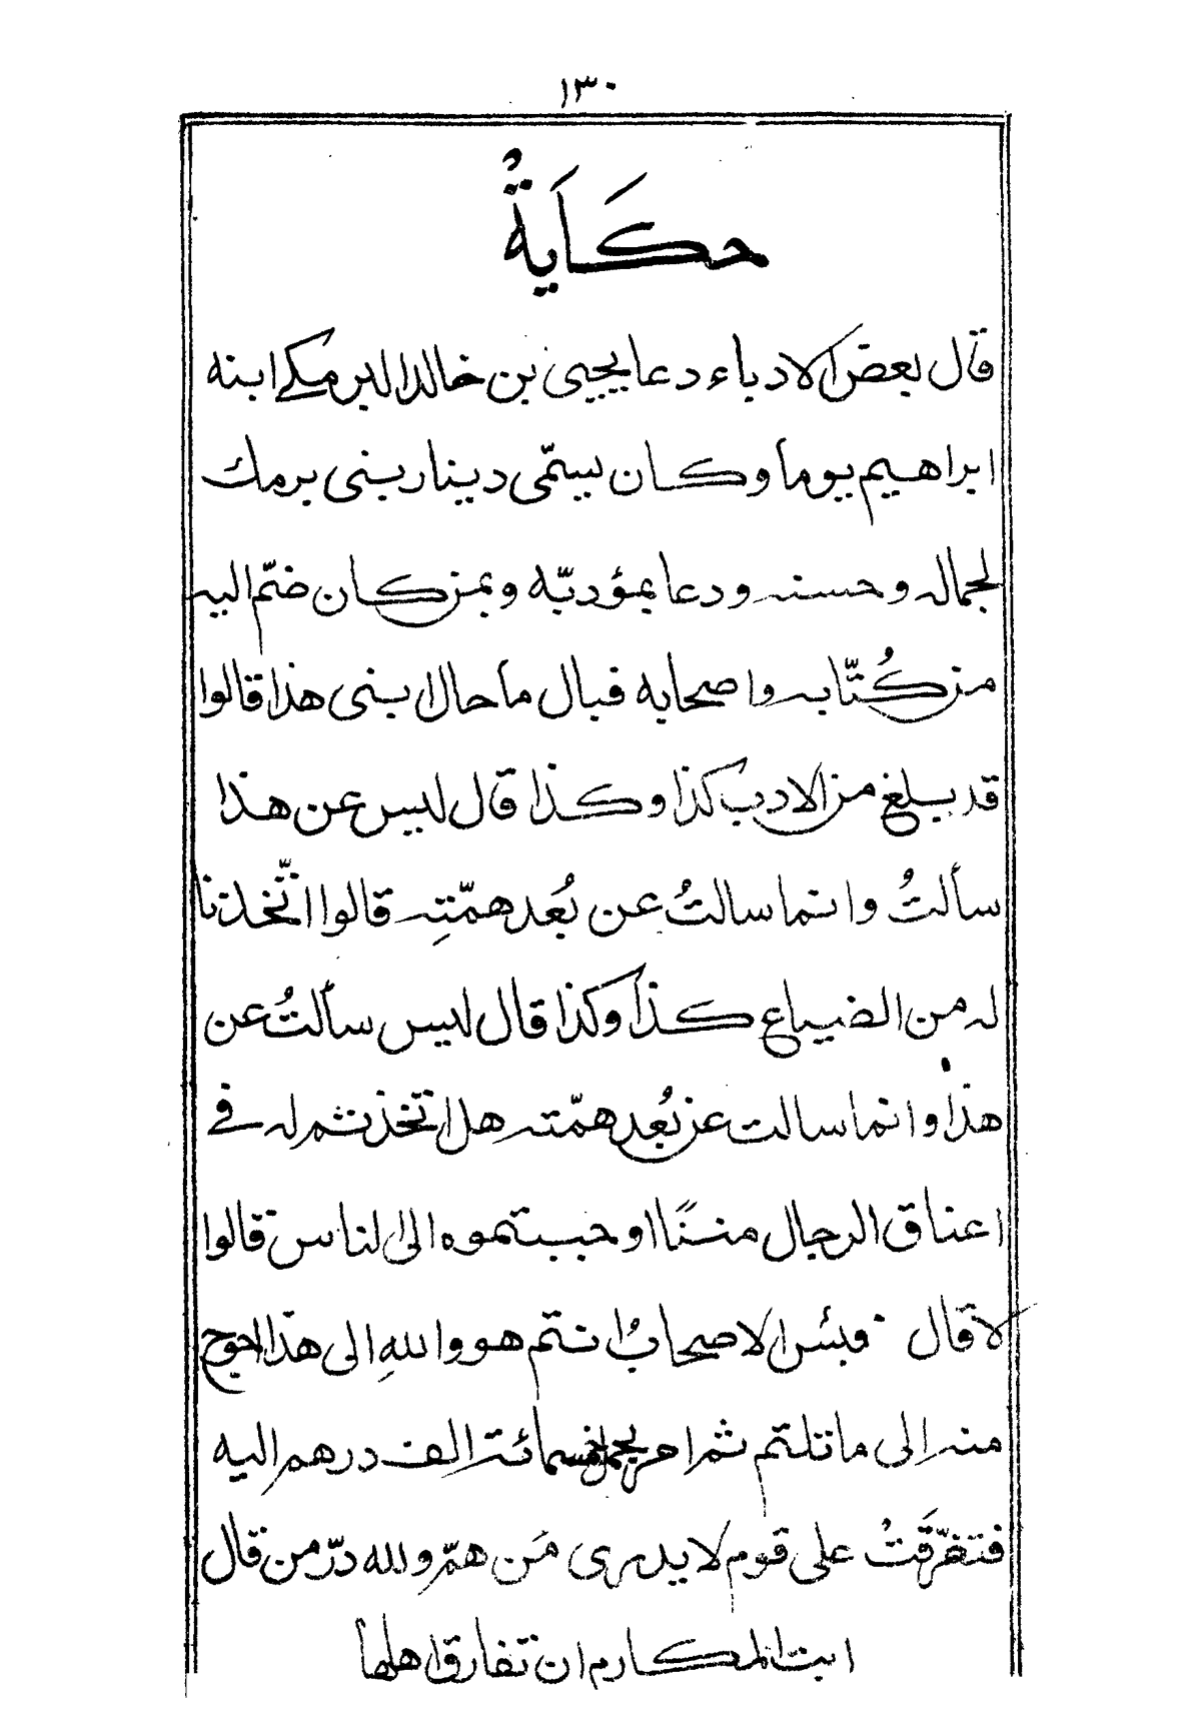 ١٣٠
حكَايَةٌ
قال بعض الادباء دعا يحيى بن خالد البرمكے ابنه
ابراهيم يوما وكان يسمّى دينار بنى برمك
لجماله وحسنه ودعا بمؤدبّه وبمن كان ضمّ اليه
من كُتّابه واصحابه فبال ما حال ابنى هذا قالوا
قد بلغ من الادب كذا وكذا قال ليس عن هذا
سألتُ وانما سالتُ عن بُعد همّتِه قالوا اتّخذنا
له من الضياع كذا وكذا قال ليس سألتُ عن
هذا وانما سالت عن بُعد همّته هل اتخذتم له فے
اعناق الرجال مننًا او حببتموه الى الناس قالوا
لا قال فبئس الاصحابُ انتم هو واللهِ الى هذا احوج
منه الى ما قلتم ثم امر بحمل خمسمائة الف درهم اليه
فتفرّقَتْ على قوم لا يدرى مَن هم ولله درّ من قال
ابت المكارم ان تفارق اهلها